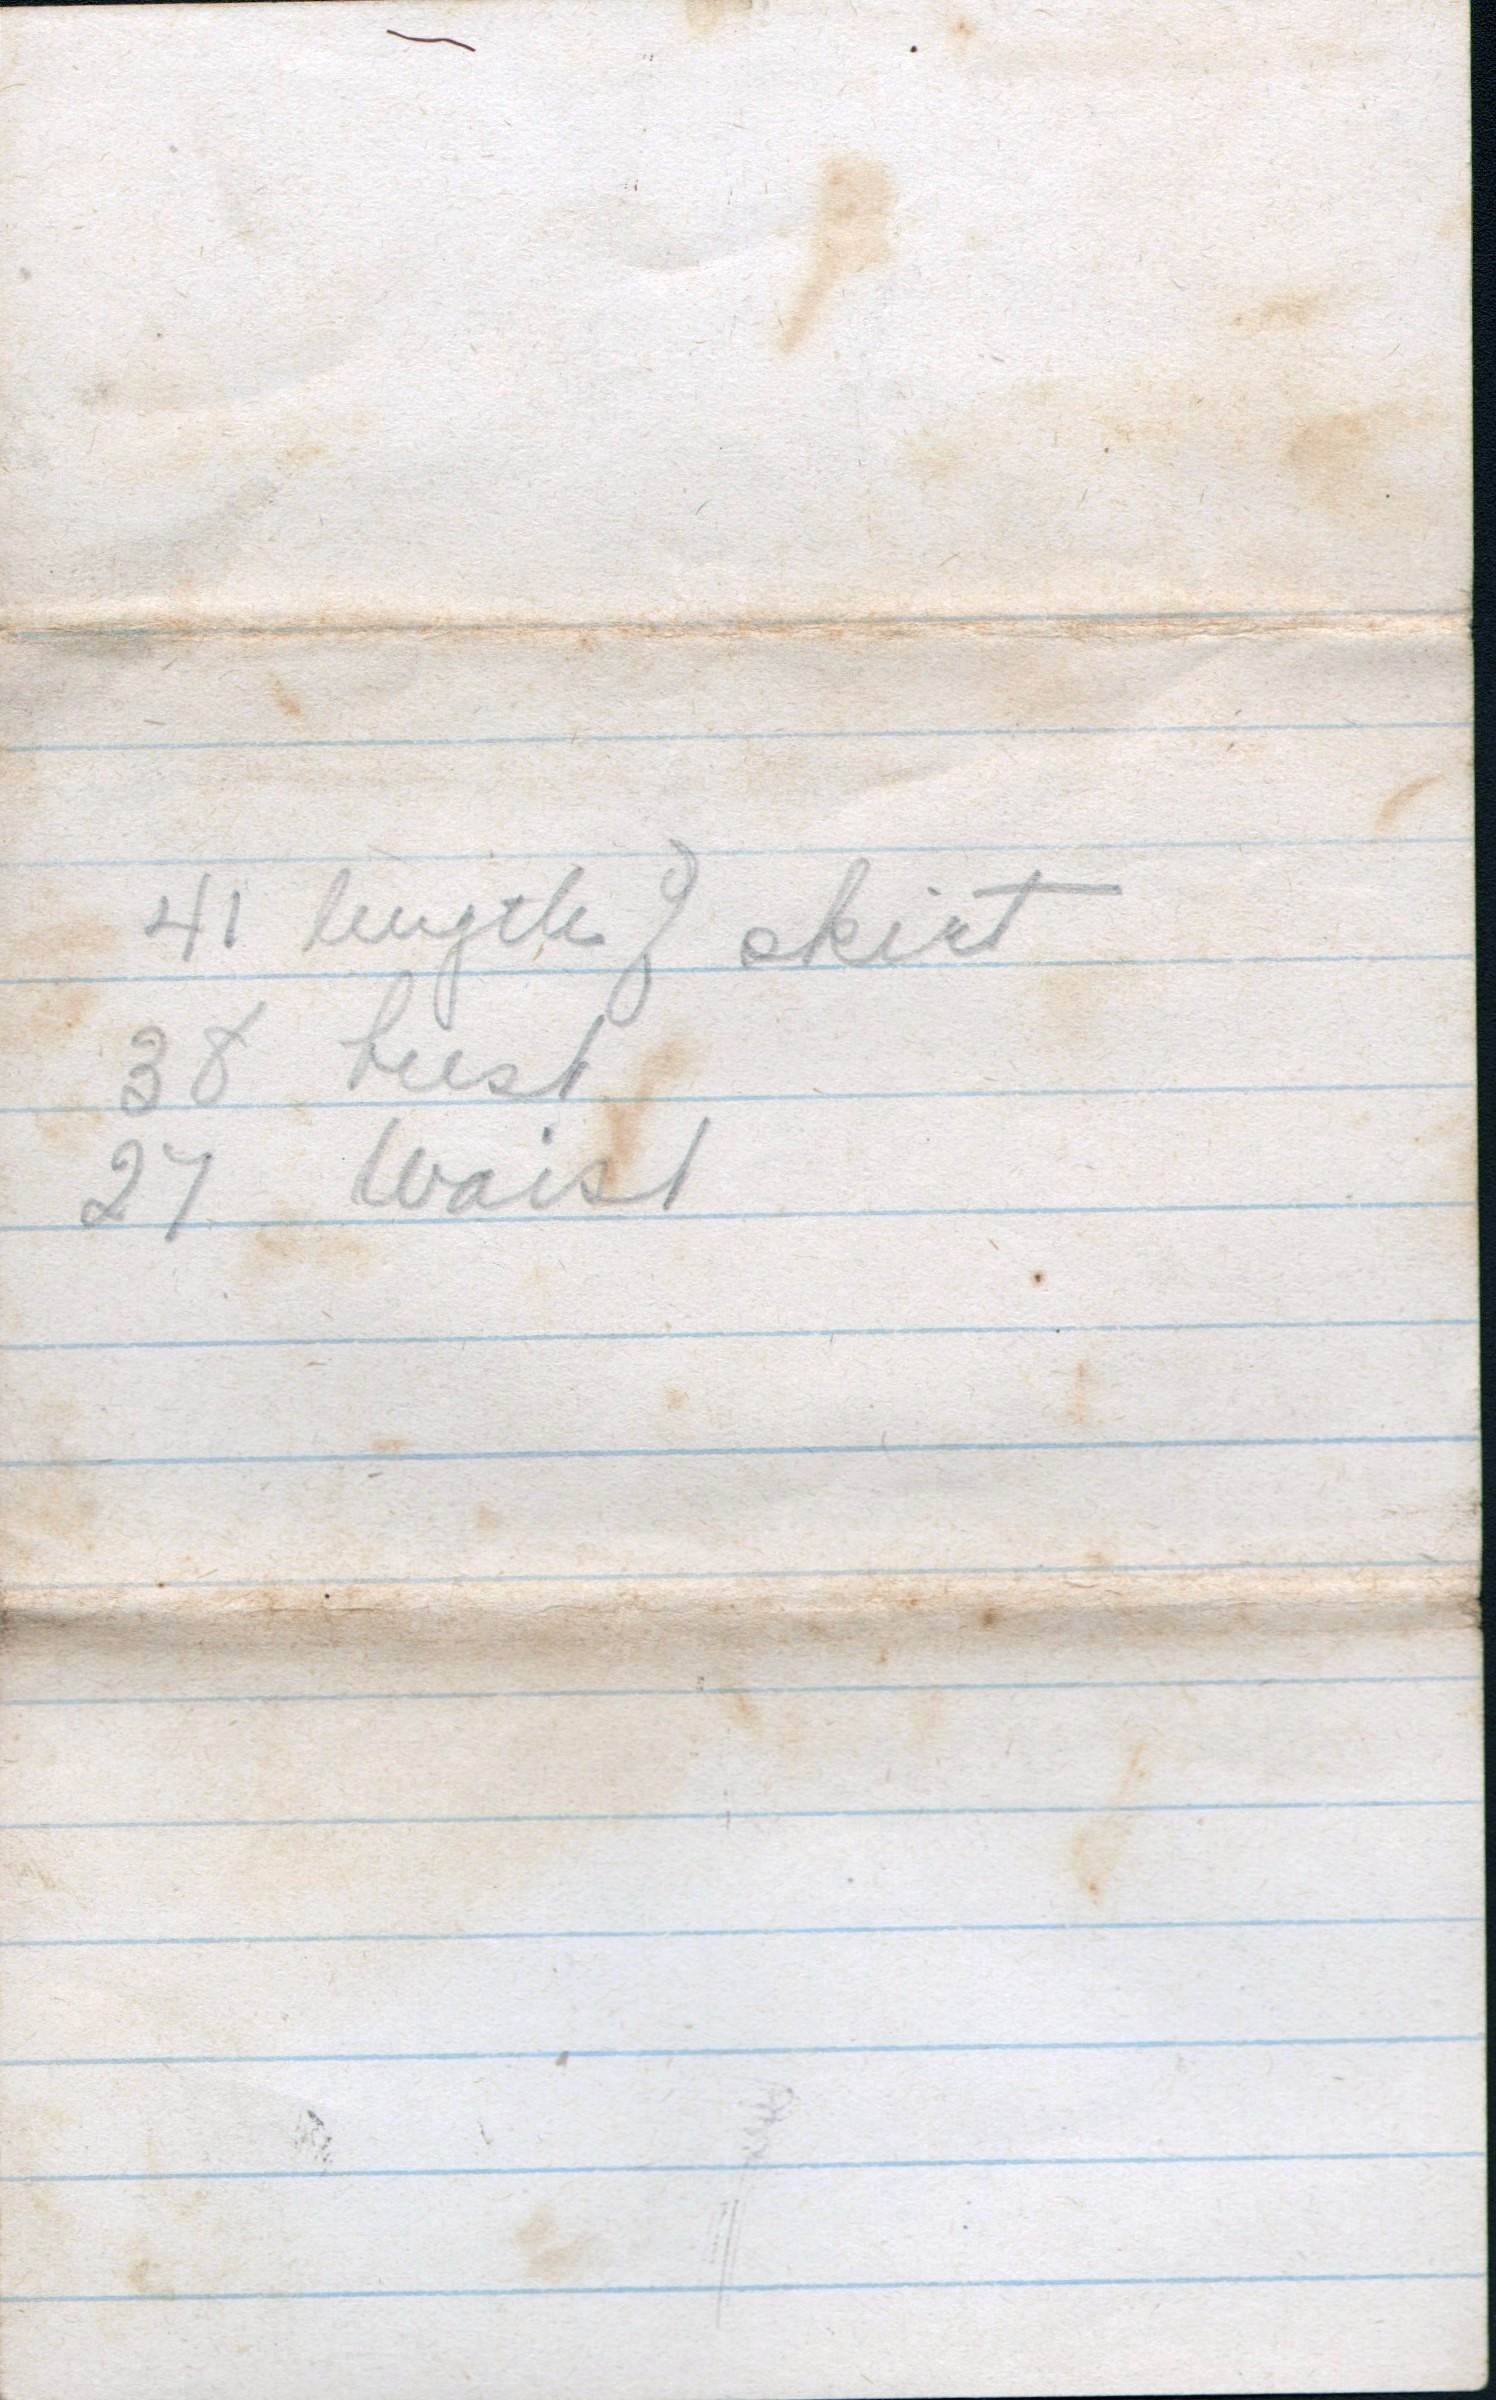 41 length of skirt
38 bust
27 Waist